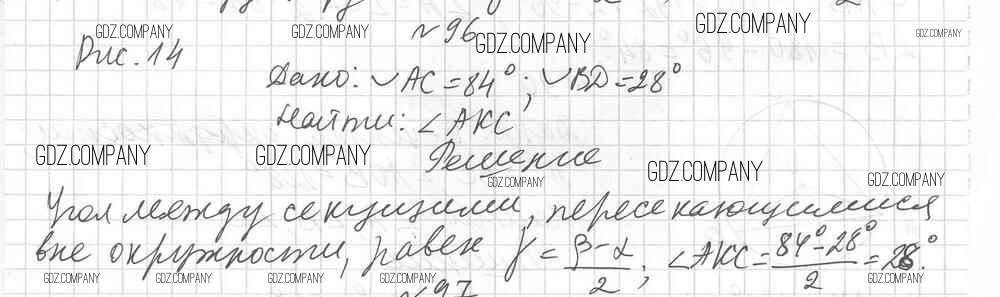 GDZ.COMPANY GDZ.COMPANY №96 GDZ.COMPANY GDZ.COMPANY GDZ.COMPANY
Рис. 14
Дано: ◡AC = 84°; ◡BD = 28°
Найти: ∠AKC
GDZ.COMPANY GDZ.COMPANY Решение GDZ.COMPANY
GDZ.COMPANY GDZ.COMPANY
Угол между секущими, пересекающимися
вне окружности, равен γ = (β-α)/2; ∠AKC = (84°-28°)/2 = 28°.
GDZ.COMPANY GDZ.COMPANY GDZ.COMPANY GDZ.COMPANY GDZ.COMPANY GDZ.COMPANY
№97